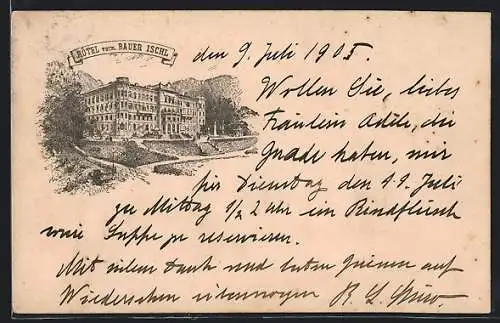 HÔTEL VORM. BAUER ISCHL
den 9. Juli 1905.
Wollen Sie, liebes
Fräulein Adèle, die
Gnade haben, mir
für Dienstag den 11. Juli
zu Mittag 1/2 2 Uhr ein Rindfleisch
wie Suppe zu reservieren.
Mit vielem Dank und guten Grüssen auf
Wiedersehen